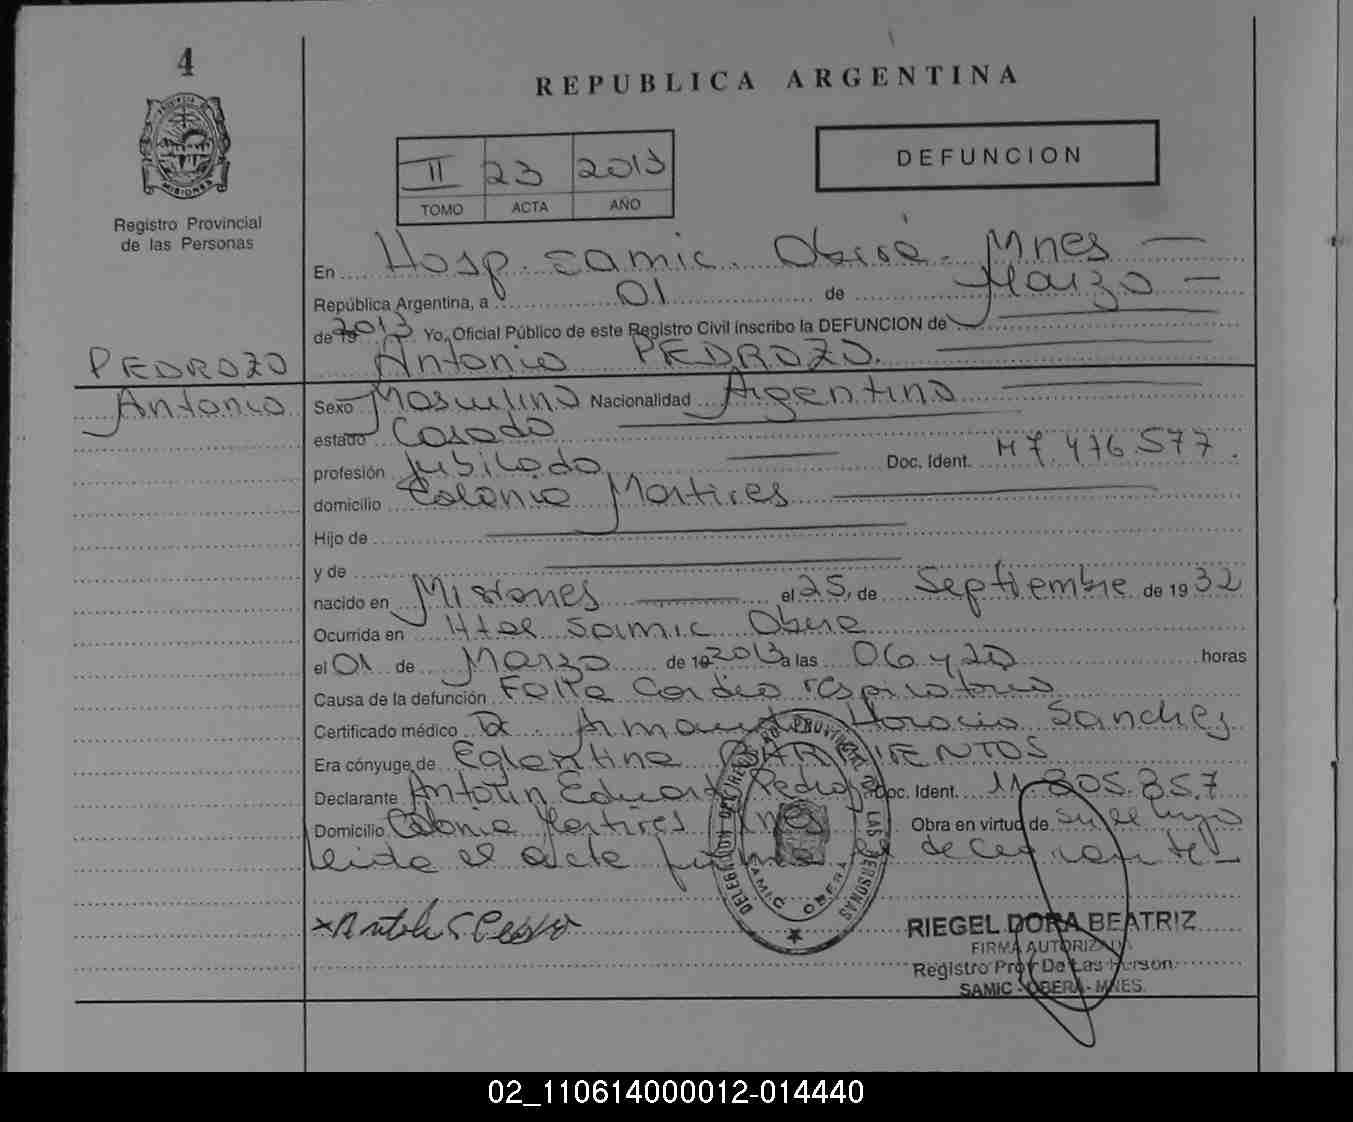 4
REPUBLICA ARGENTINA
II 23 2013
TOMO ACTA AÑO
DEFUNCION
Registro Provincial
de las Personas
En Hosp. samic. Oberá. Mnes
República Argentina, a 01 de Marzo
de 19 2013 Yo, Oficial Público de este Registro Civil inscribo la DEFUNCION de
Antonio PEDROZO.
PEDROZO
Antonio
Sexo Masculino Nacionalidad Argentino
estado Casado
profesión Jubilado Doc. Ident. M 7.476.577.
domicilio Colonia Martires
Hijo de
y de
nacido en Misiones el 25. de Septiembre de 1932
Ocurrida en Htal Samic Obera
el 01 de Marzo de 19 2013 a las 06 y 20 horas
Causa de la defunción Falta Cardio respiratorio
Certificado médico Dr. Armando Horacio Sanches
Era cónyuge de Eglantina BARRIENTOS
Declarante Antolin Eduardo Pedrozo Doc. Ident. 11.805.857
Domicilio Colonia Martires Mnes Obra en virtud de ser el hijo
leida el acta firma el declarante
DELEGACION DEL REGISTRO PROVINCIAL DE LAS PERSONAS
SAMIC OBERA
RIEGEL DORA BEATRIZ
FIRMA AUTORIZADA
Registro Prov De Las Person.
SAMIC - OBERA - MNES.
02_110614000012-014440